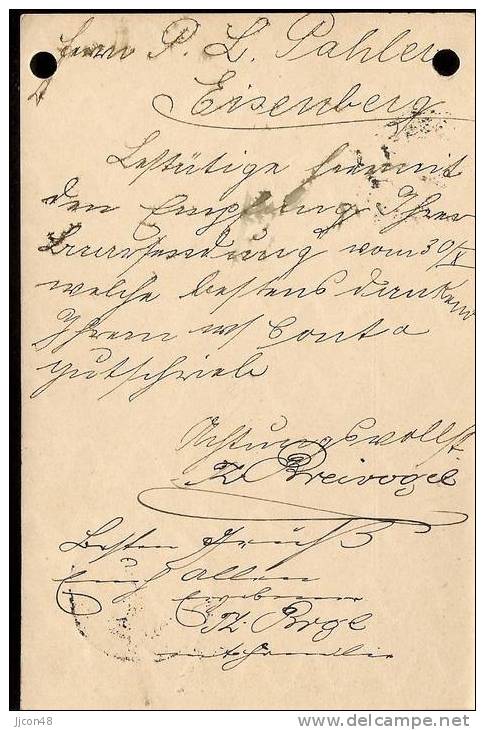 Herrn P. L. Pahler
Eisenberg.
Bestätige hiermit
den Empfang Ihrer
Baarsendung vom 30/X
welche bestens dankend
Ihrem w/ Conto
gutschrieb
Achtungsvollst
Breivogel
Besten Gruß
Euch allen
Ergebener
jjcon48
delcampe.net